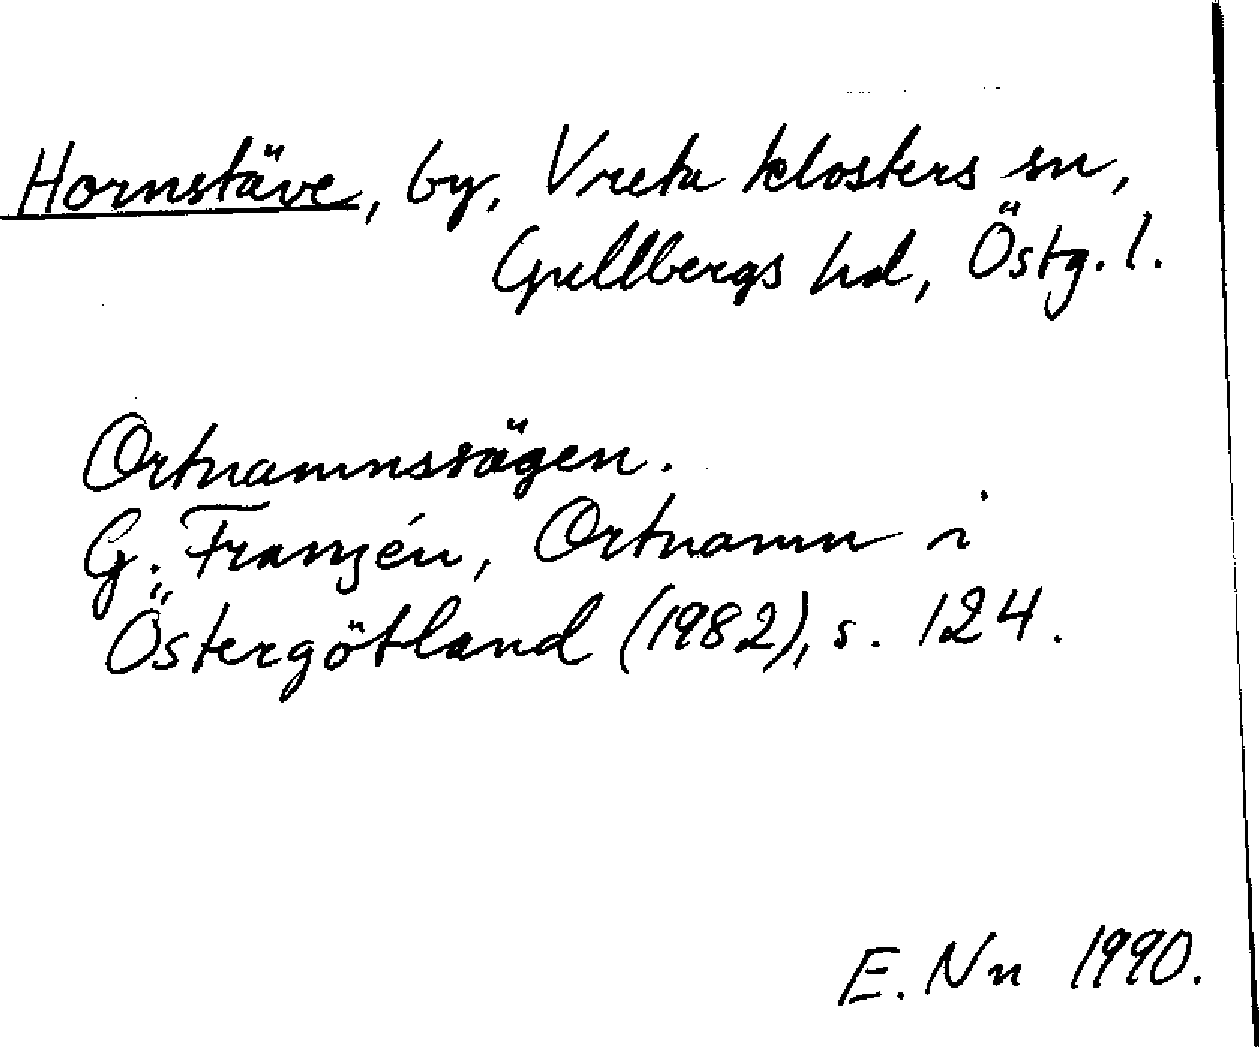 Hornstäve, by, Vreta klosters sn,
Gullbergs hd, Östg. l.
Ortnamnssägen.
G. Franzén, Ortnamn i
Östergötland (1982), s. 124.
E. Nn 1990.